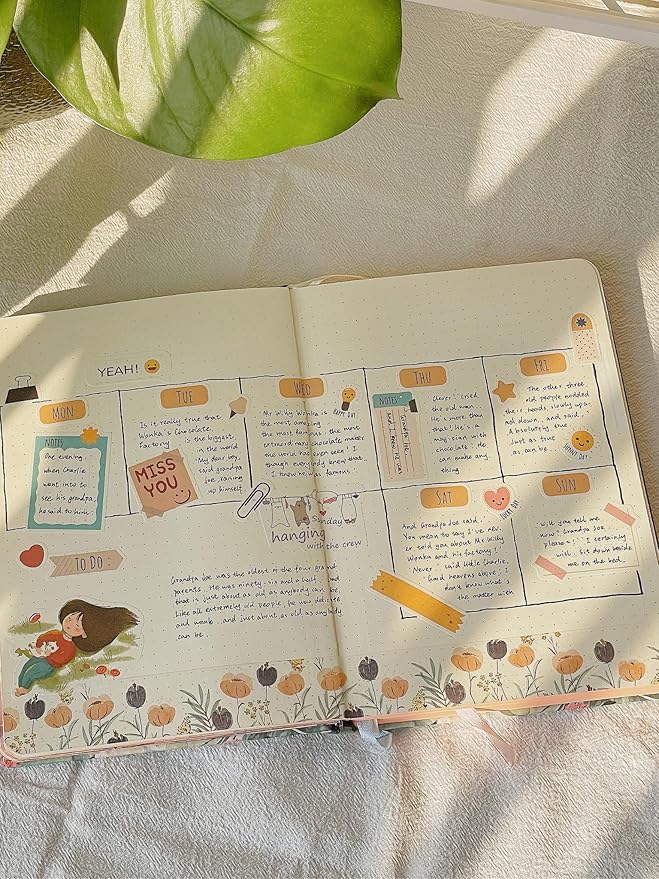 YEAH!
MON
NOTES
One evening,
when Charlie
went into to
see his grandpa,
he said to him.
TUE
Is it really true that
Wonka's Chocolate
Factory is the biggest
in the world
My dear boy,
said grandpa
Joe, raising
up himself
MISS
YOU
WED
HAPPY DAY
Mr Willy Wonka is
the most amazing
the most famous the most
extraordinary chocolate maker
the world has ever seen! I
though everybody knew that.
I knew he was famous
THU
NOTES
Grandpa Joe,
and I knew he was
clever! cried
the old man
He's more than
that! He's a
magician with
chocolate
can make any
thing
FRI
The other three
old people nodded
their heads slowly up
ad down, and said,
Absolutely true.
Just as true
as can be.
SUNNY DAY
Sunday
hanging
with the crew
SAT
LUCKY DAY
And Grandpa Joe said.
You mean to say I've nev
er told you about Mr Willy
Wonka and his factory?
Never, said little Charlie.
Good heavens above, I
don't know what's
the matter with
SUN
Will you tell me
now Grandpa Joe.
please I certainly
will. Sit down beside
me on the bed.
TO DO:
Grandpa Joe was the oldest of the four grand
parents. He was ninety-six and a half, and
that is just about as old as anybody can be.
Like all extremely old people, he was delicate
and weak, and just about as old as anybody
can be.